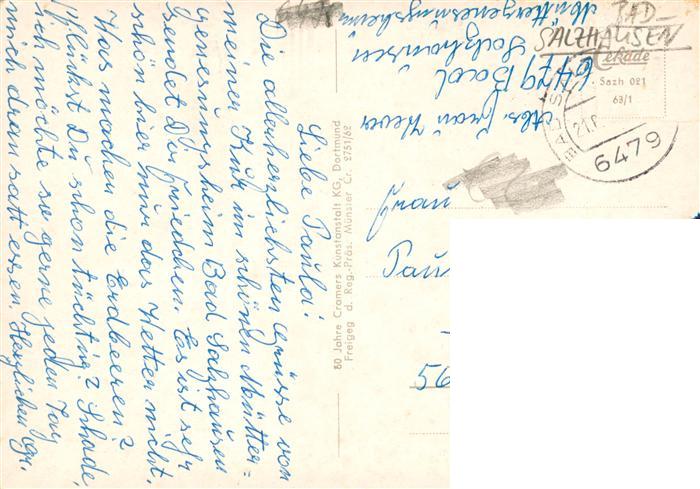 Liebe Paula!
Die allerherzlichsten Grüsse von
meiner Kur im schönen Mütter=
genesungsheim Bad Salzhausen
sendet Dir Friedchen. Es ist sehr
schön hier nur das Wetter nicht.
Was machen die Erdbeeren?
Pflückst Du schon tüchtig? Schade,
ich möchte so gerne jeden Tag
mich dran satt essen. Herzlichen Gr.
80 Jahre Cramers Kunstanstalt KG, Dortmund
Freigeg. d. Reg.-Präs. Münster Cr. 2751/62
Abs. Frau
6479 Bad
Salzhausen
Müttergenesungsheim
BAD-
SALZHAUSEN
Cekade
Sazh 021
63/1
6479
BAD SA
21.
Frau
Pau
56